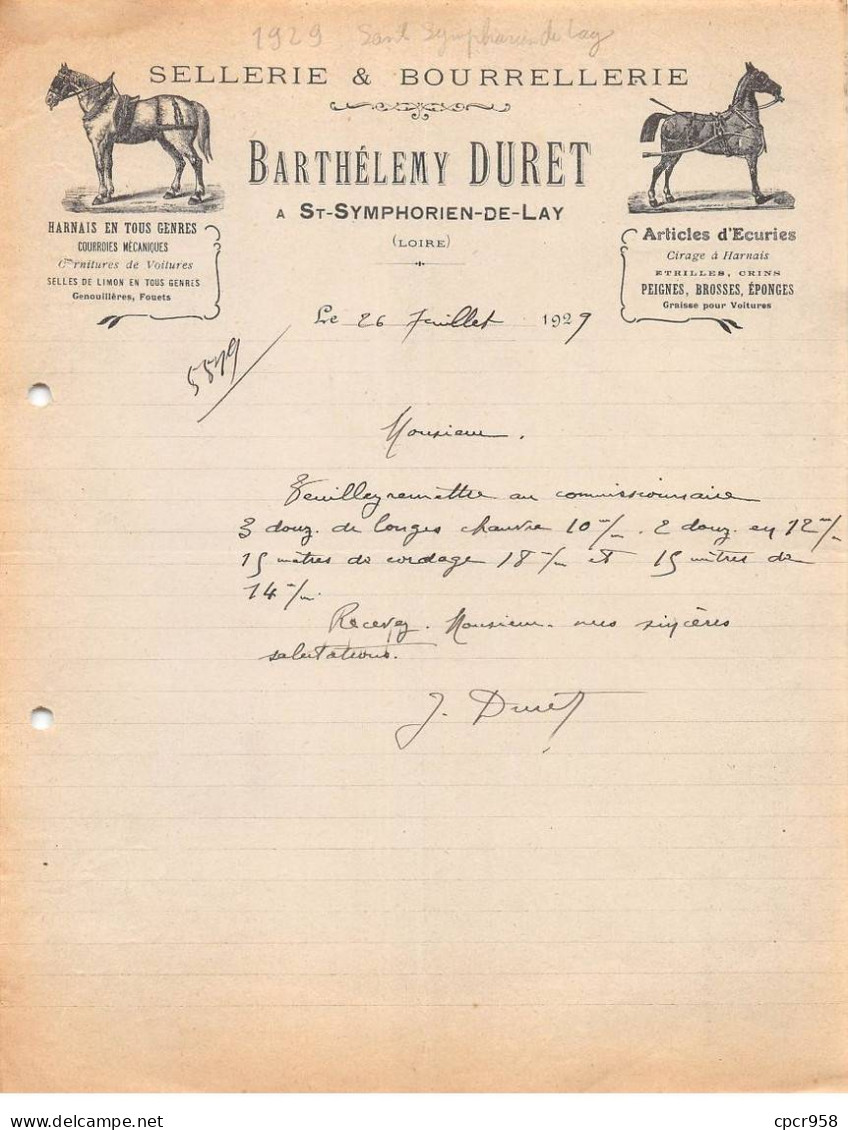 1929 Sant Symphorien de Lay
SELLERIE & BOURRELLERIE
BARTHÉLEMY DURET
A ST-SYMPHORIEN-DE-LAY
(LOIRE)
HARNAIS EN TOUS GENRES
COURROIES MÉCANIQUES
Garnitures de Voitures
SELLES DE LIMON EN TOUS GENRES
Genouillères, Fouets
Articles d'Ecuries
Cirage à Harnais
ETRILLES, CRINS
PEIGNES, BROSSES, ÉPONGES
Graisse pour Voitures
Le 26 Juillet 1929
Monsieur.
Veuillez remettre au commissionnaire
3 douz. de longes chanvre 10 m/m. 2 douz. en 12 m/m
15 mètres de cordage 18 m/m et 15 mètres de
14 m/m.
Recevez. Monsieur. nos sincères
salutations.
J. Duret
delcampe.net
cpcr958